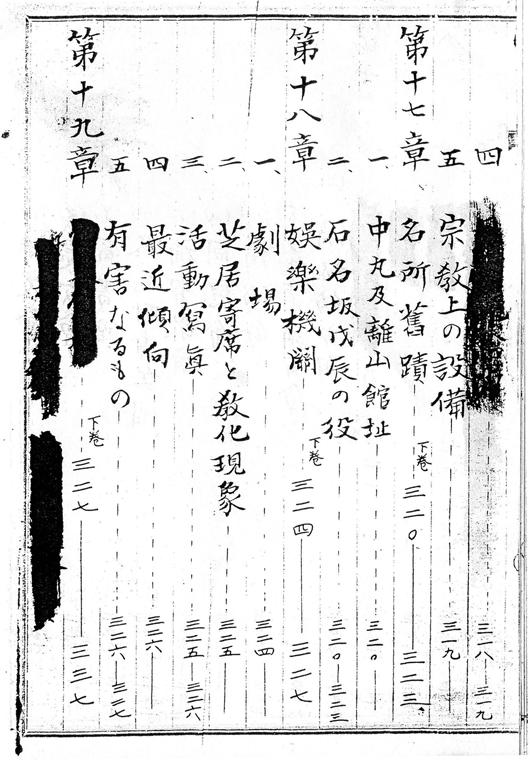 四 三一八─三一九
五 宗教上の設備 三一九
第十七章、名所舊蹟 下巻 三二〇─三二三
一、中丸及離山館址 三二〇
二、石名坂戊辰の役 三二〇─三二三
第十八章 娯樂機關 下巻 三二四─三二七
一、劇場 三二四
二、芝居寄席と敎化現象 三二五
三、活動寫眞 三二五─三二六
四 最近傾向 三二六
五 有害なるもの 三二六─三二七
第十九章 下巻 三二七─三三七